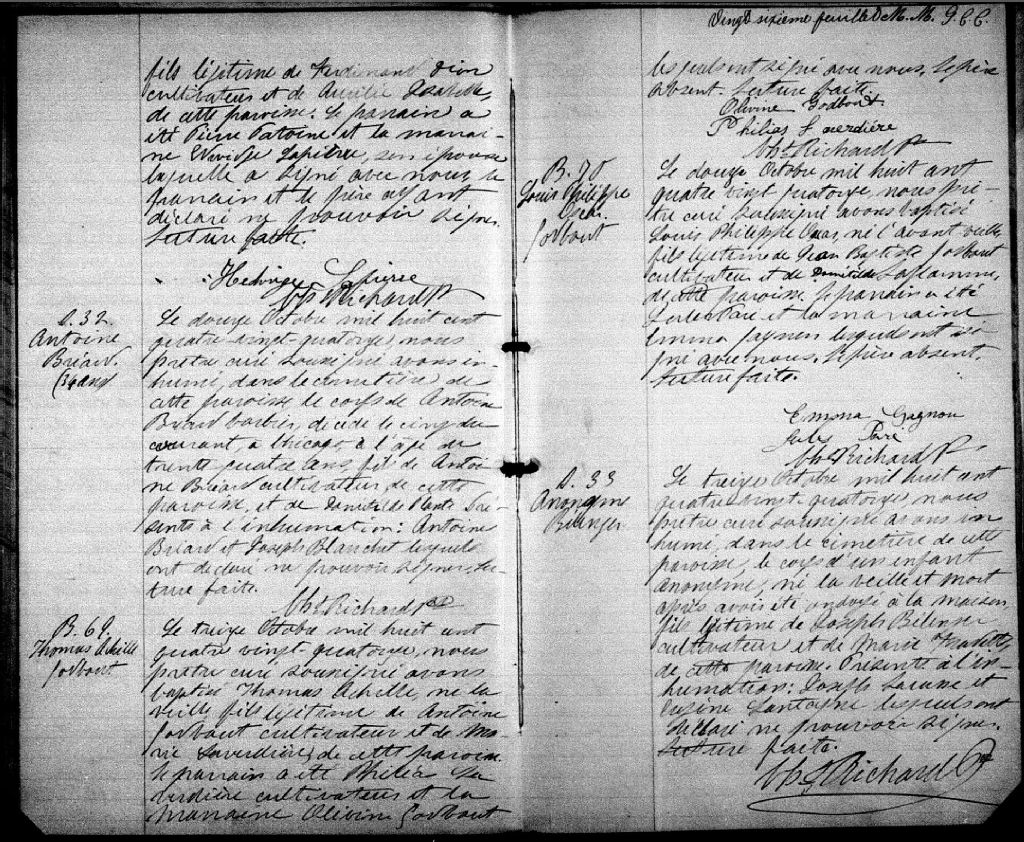 fils légitime de Ferdinand Dion
cultivateur et de Aurélie Isabelle,
de cette paroisse. Le parrain a
été Pierre Patoine et la marrai-
ne Edvidge Lapierre, son épouse
laquelle a signé avec nous, le
parrain et le père ayant
déclaré ne pouvoir signer.
Lecture faite.
Hedwige Lapierre
Richard Ptre
S. 32.
Antoine
Briard.
(34 ans)
Le douze Octobre mil huit cent
quatre vingt-quatorze, nous
prêtre curé soussigné avons in-
humé, dans le cimetière de
cette paroisse le corps de Antoine
Briard barbier, décédé le cinq du
courant, a Chicago à l'âge de
trente quatre ans, fils de Antoi-
ne Briard cultivateur de cette
paroisse, et de Demitilde Plante Pré-
sents à l'inhumation: Antoine
Briard et Joseph Blanchet lesquels
ont déclaré ne pouvoir signer, Lec-
ture faite.
Richard Ptre
B. 69.
Thomas Achille
Godbout
Le treize Octobre mil huit cent
quatre vingt quatorze, nous
prêtre curé soussigné avons
baptisé Thomas Achille, né la
veille fils légitime de Antoine
Godbout cultivateur et de Ma-
rie Laverdière, de cette paroisse.
Le parrain a été Philias La-
verdière cultivateur et la
Marraine Olivine Godbout
Vingt sixième feuillet M. M. J. C. C.
lesquels ont signé avec nous, le père
absent. Lecture faite.
Olivine Godbout
Philias Laverdière
Richard Ptre
B. 70
Louis Philippe
Oscar
Godbout
Le douze Octobre mil huit cent
quatre vingt quatorze, nous prê-
tre curé soussigné avons baptisé
Louis Philippe Oscar, né l'avant veille
fils légitime de Jean Baptiste Godbout
cultivateur et de Demitilde Laflamme,
de cette paroisse. Le parrain a été
Jules Paré et la marraine
Emma Gagnon lesquels ont si-
gné avec nous. Le père absent.
Lecture faite.
Emma Gagnon
Jules Paré
Richard Ptre
S. 33
Anonyme
Bélanger
Le treize Octobre mil huit cent
quatre vingt-quatorze nous
prêtre curé soussigné avons in
humé, dans le cimetière de cette
paroisse, le corps d'un enfant
anonyme, né la veille et mort
après avoir été ondoyé à la maison
fils légitime de Joseph Bélanger
cultivateur et de Marie
de cette paroisse. Présents à l'in-
humation: Joseph et
lesquels ont
déclaré ne pouvoir signer.
Lecture faite.
Richard Ptre